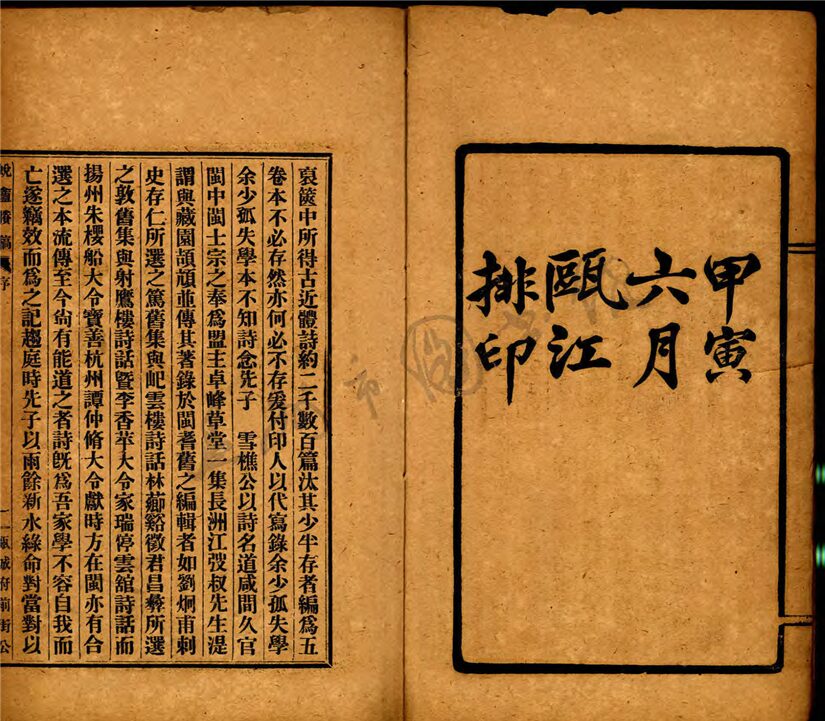 甲寅
六月
甌江
排印
裒篋中所得古近體詩約二千數百篇汰其少半存者編爲五
卷本不必存然亦何必不存爰付印人以代寫錄余少孤失學
余少孤失學本不知詩念先子　雪樵公以詩名道咸間久官
閩中閩士宗之奉爲盟主卓峰草堂一集長洲江弢叔先生湜
謂與藏園頡頏並傳其著錄於閩耆舊之編輯者如劉炯甫刺
史存仁所選之篤舊集與屺雲樓詩話林薌谿徵君昌彝所選
之敦舊集與射鷹樓詩話暨李香苹大令家瑞停雲舘詩話而
揚州朱櫻船大令寶善杭州譚仲脩大令獻時方在閩亦有合
選之本流傳至今尙有能道之者詩旣爲吾家學不容自我而
亡遂竊效而爲之記趨庭時先子以雨餘新水綠命對當對以
蛻盦賸稿
序
一
甌城府前街公